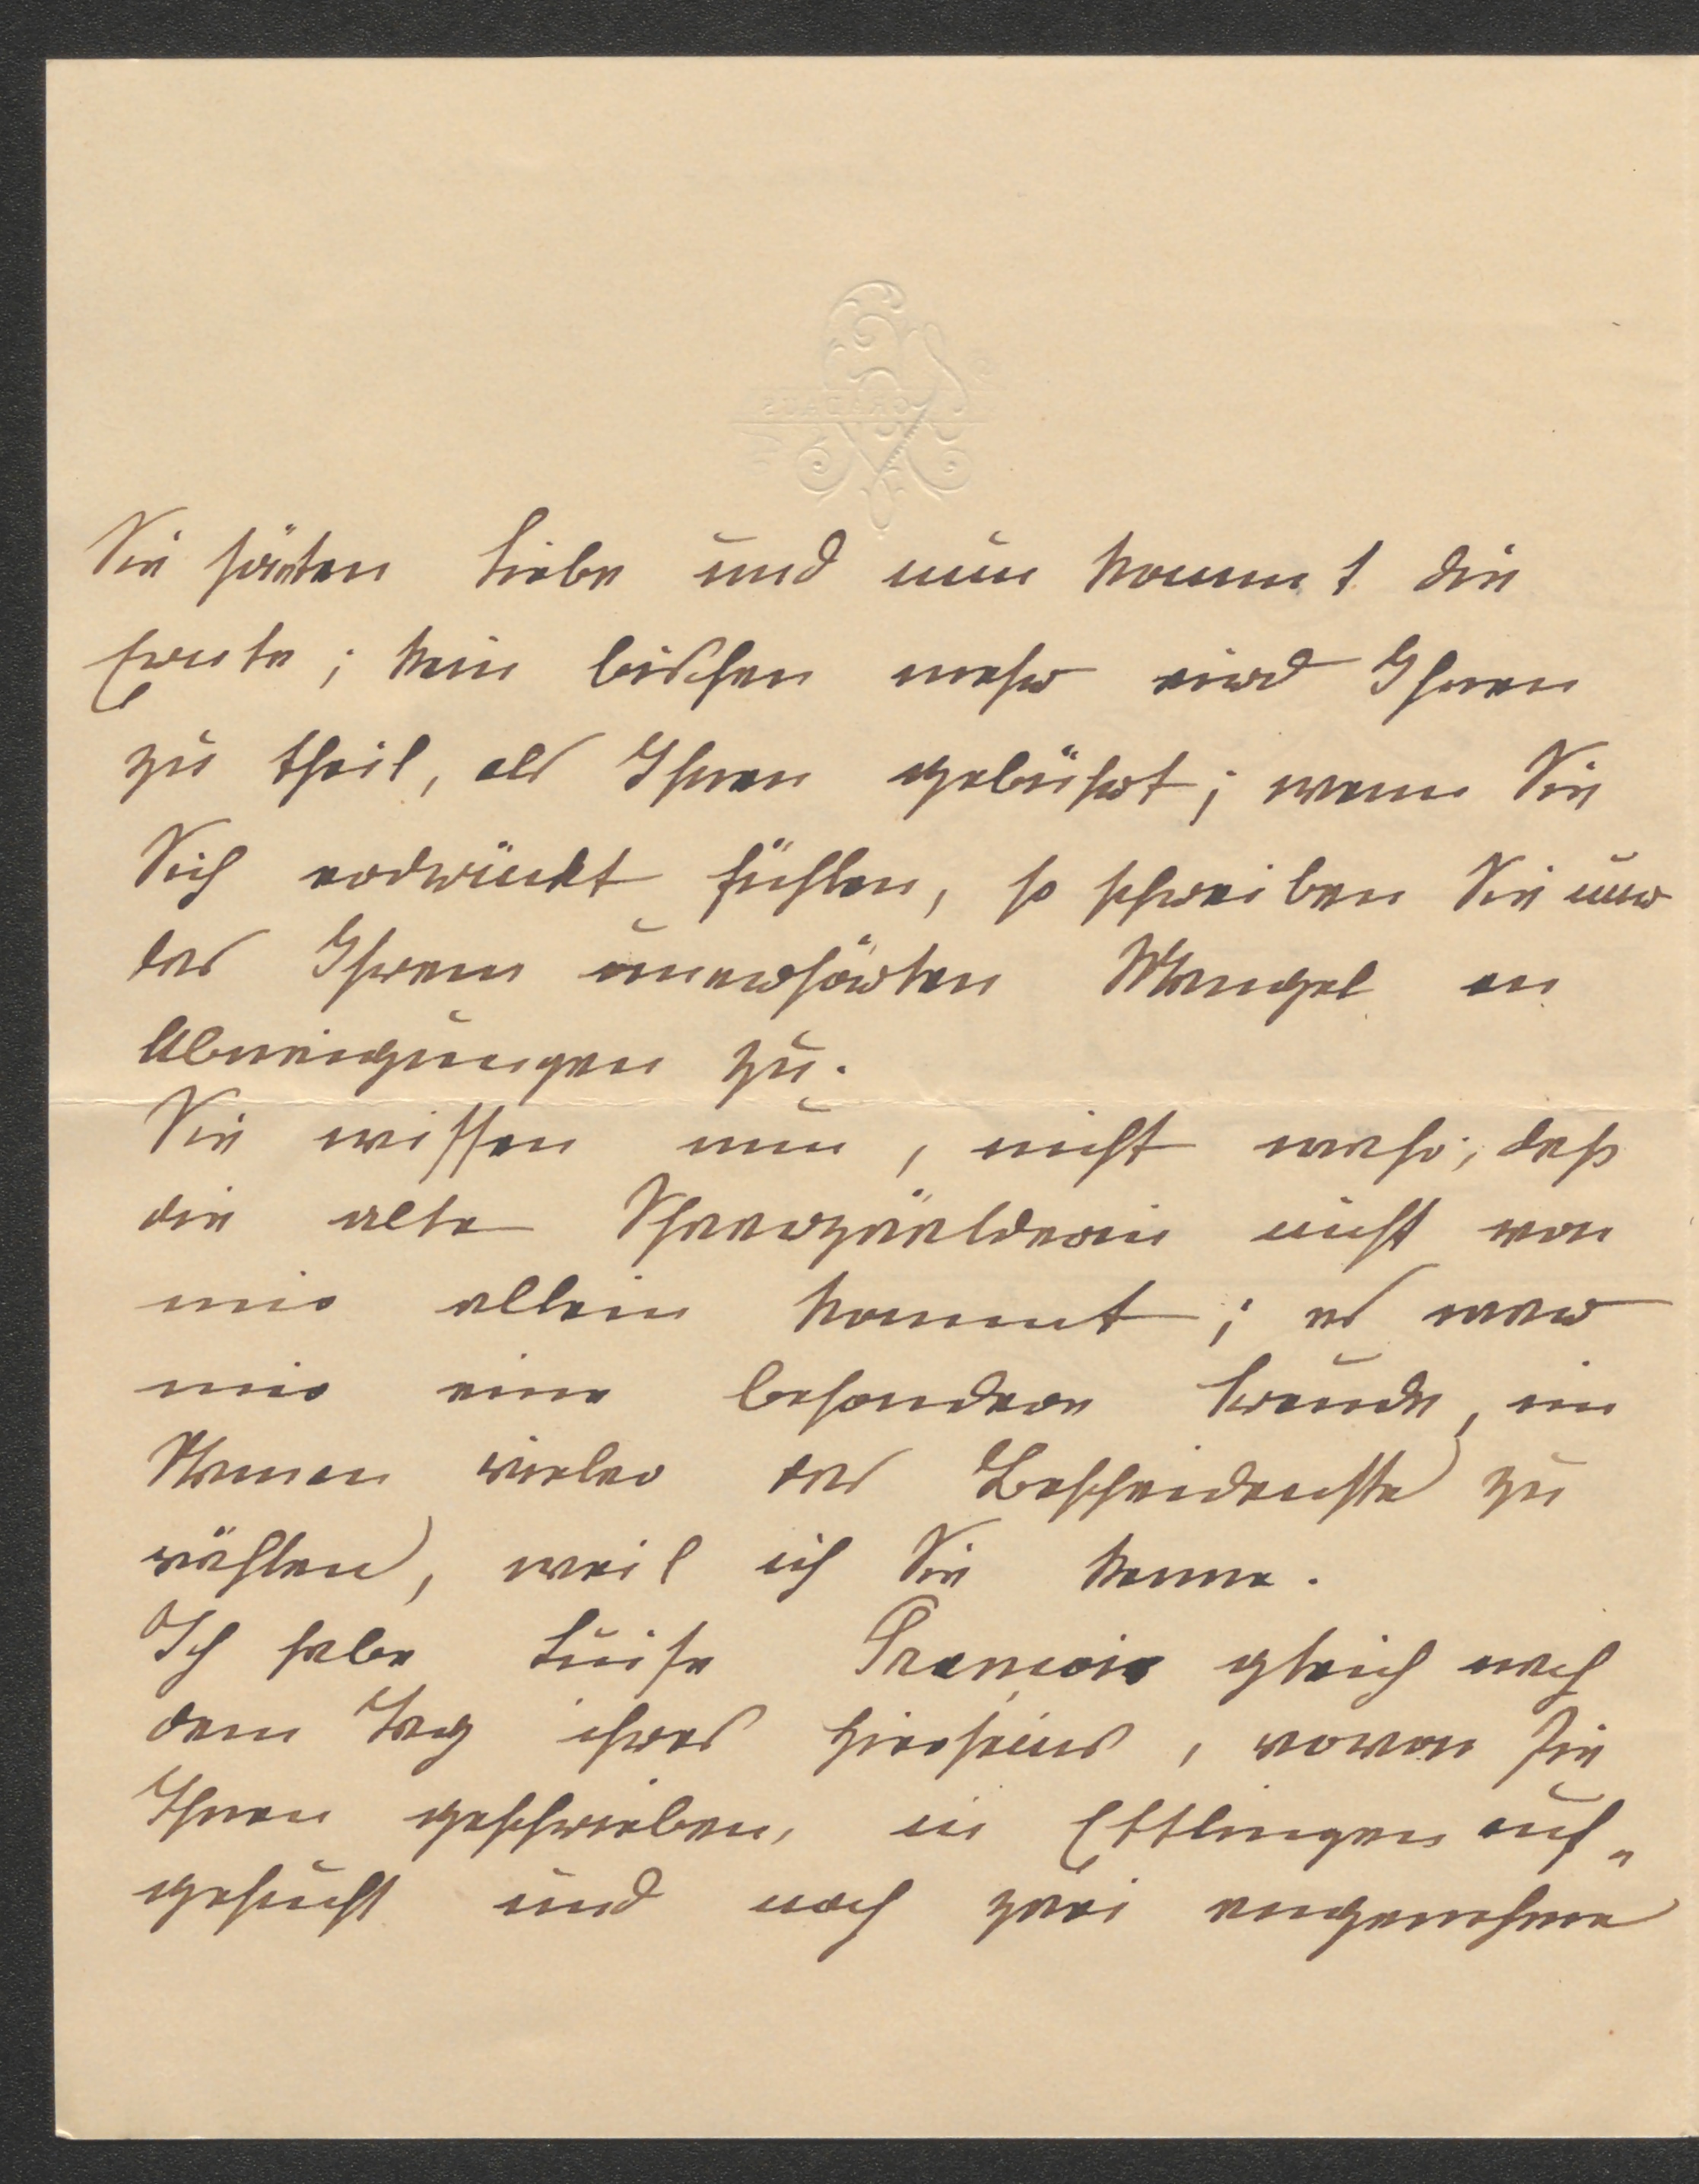 Sie säeten Liebe und nun kommt die
Ernte; kein bischen mehr wird Ihnen
zu theil, als Ihnen gebührt; wenn Sie
Sich erdrückt fühlen, so schreiben Sie nur
das Ihrem unerhörten Mangel an
Abneigungen zu.
Sie wissen nun, nicht wahr, daß
die alte Schwarzwälderin nicht von
mir allein kommt; es war
mir eine besondere Freude, im
Namen vieler das Bescheidenste zu
wählen, weil ich Sie kenne.
Ich habe Luise François gleich nach
dem Tag ihres Hierseins, wovon sie
Ihnen geschrieben, in Ettlingen auf„
gesucht und noch zwei angenehme